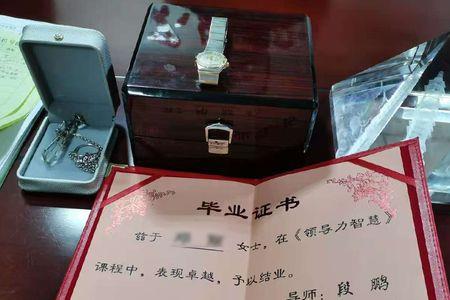 毕业证书
兹于 女士，在《领导力智慧》
课程中，表现卓越，予以结业。
导师：段鹏